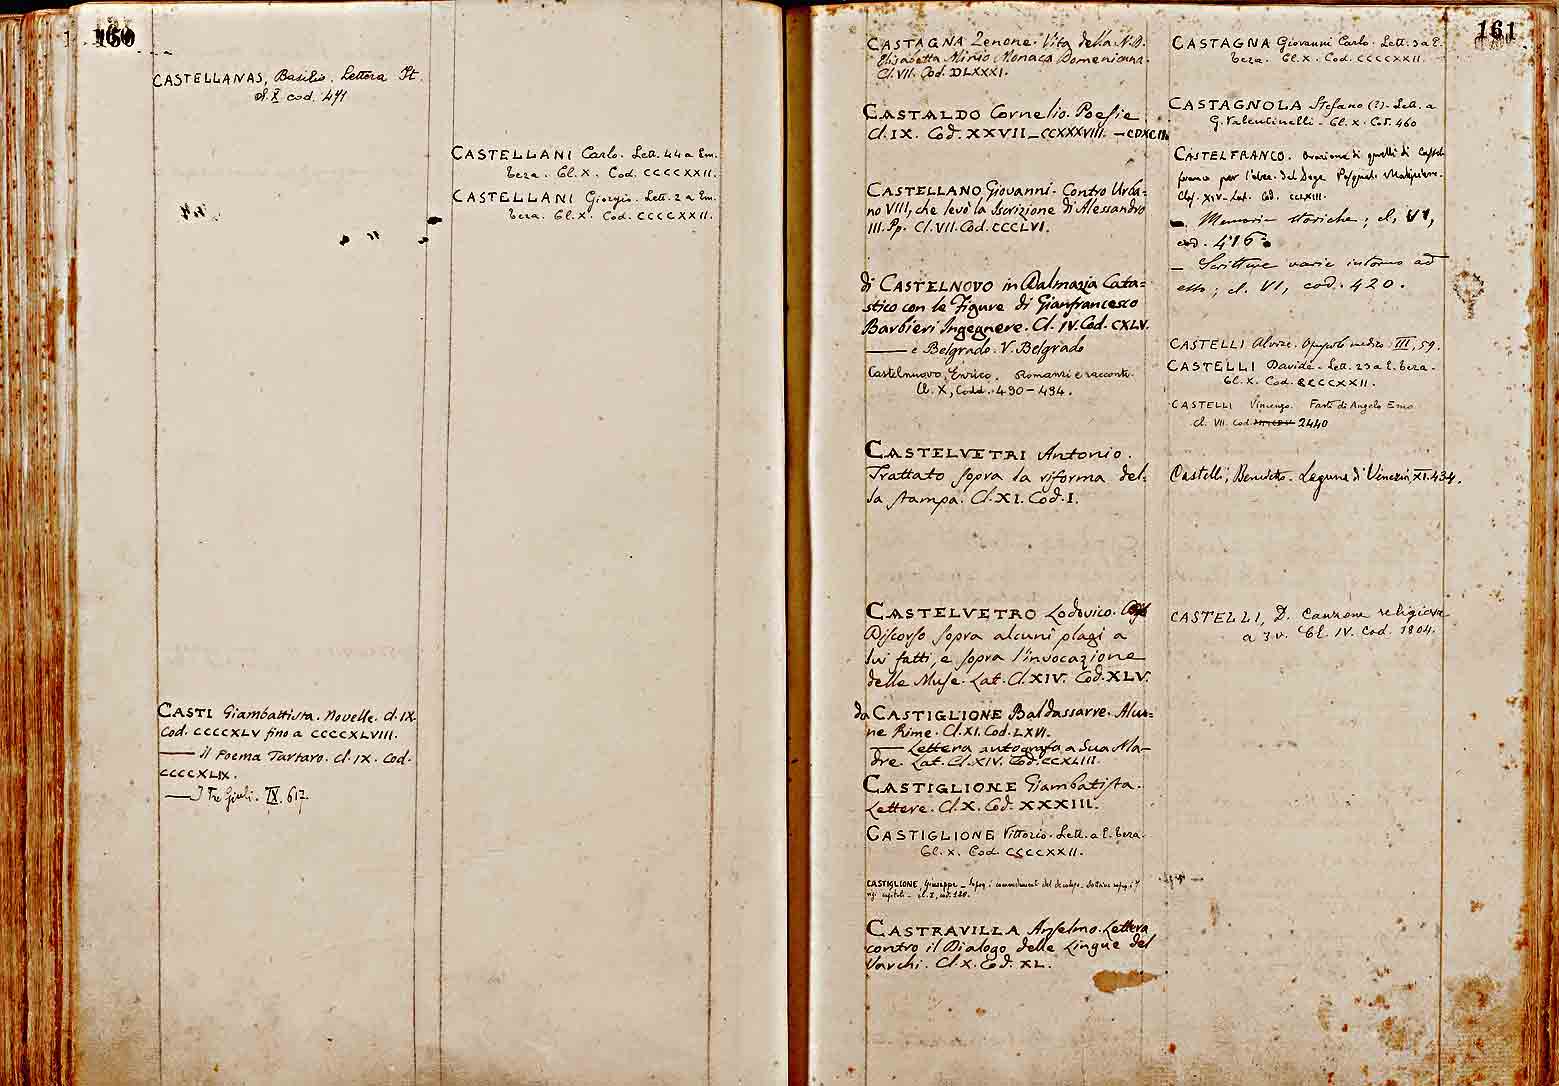 160
CASTELLANAS, Basilio. Lettera It.
cl. X cod. 471
CASTELLANI Carlo. Lett. 44 a Em.
Teza. Cl. X. Cod. CCCCXXII.
CASTELLANI Giorgio. Lett. 2 a Em.
Teza. Cl. X. Cod. CCCCXXII.
CASTI Giambattista. Novelle. Cl. IX.
Cod. CCCCXLV fino a CCCCXLVIII.
— il Poema Tartaro. Cl. IX. Cod.
CCCCXLIX.
— I Tre Giuli. IX. 617.
161
CASTAGNA Zenone. Vita della N.D.
Elisabetta Minio Monaca Domenicana.
Cl. VII. Cod. DLXXXI.
CASTALDO Cornelio. Poesie
Cl. IX. Cod. XXVII_CCXXXVIII.
CASTELLANO Giovanni. Contro Urba=
no VIII, che levò la Iscrizione di Alessandro
III. Pp. Cl. VII. Cod. CCCLVI.
di CASTELNOVO in Dalmazia Cata=
stico con le Figure di Gianfrancesco
Barbieri Ingegnere. Cl. IV. Cod. CXLV.
— e Belgrado. V. Belgrado
Castelnuovo, Enrico. Romanzi e racconti.
Cl. X, Codd. 490-494.
CASTELVETRI Antonio.
Trattato sopra la riforma del=
la stampa. Cl. XI. Cod. I.
CASTELVETRO Lodovico.
Discorso sopra alcuni plagi a
lui fatti, e sopra l'invocazione
delle Muse. Lat. Cl. XIV. Cod. XLV.
da CASTIGLIONE Baldassarre. Alcu=
ne Rime. Cl. XI. Cod. LXVI.
— Lettera autografa a Sua Ma-
dre. Lat. Cl. XIV. Cod. CCXLIII.
CASTIGLIONE Giambatista.
Lettere. Cl. X. Cod. XXXIII.
CASTIGLIONE Vittorio. Lett. a E. Teza.
Cl. X. Cod. CCCCXXII.
CASTIGLIONE, Giuseppe — Sopra i comandamenti del decalogo.
CASTRAVILLA Anselmo. Lettera
contro il Dialogo delle Lingue del
Varchi. Cl. X. Cod. XL.
CASTAGNA Giovanni Carlo. Lett. 3 a E.
Teza. Cl. X. Cod. CCCCXXII.
CASTAGNOLA Stefano (?). Lett. a
G. Valentinelli - Cl. X. Cod. 460
CASTELFRANCO. Orazione di quelli di Castel
franco per l'elez. del Doge Pasquale Malipiero.
Clas. XIV. Lat. Cod. CCLXIII.
— Memorie storiche; cl. VI,
cod. 416
— Scritture varie intorno ad
esso; cl. VI, cod. 420.
CASTELLI Alvise. Opuscoli medici III, 59.
CASTELLI Davide. Lett. 23 a E. Teza.
Cl. X. Cod. CCCCXXII.
CASTELLI Vincenzo. Fasti di Angelo Emo
cl. VII. Cod. 2440
Castelli, Benedetto. Lagune di Venezia, XI. 434.
CASTELLI, D. Canzone religiosa
a 3 v. Cl. IV. Cod. 1804.